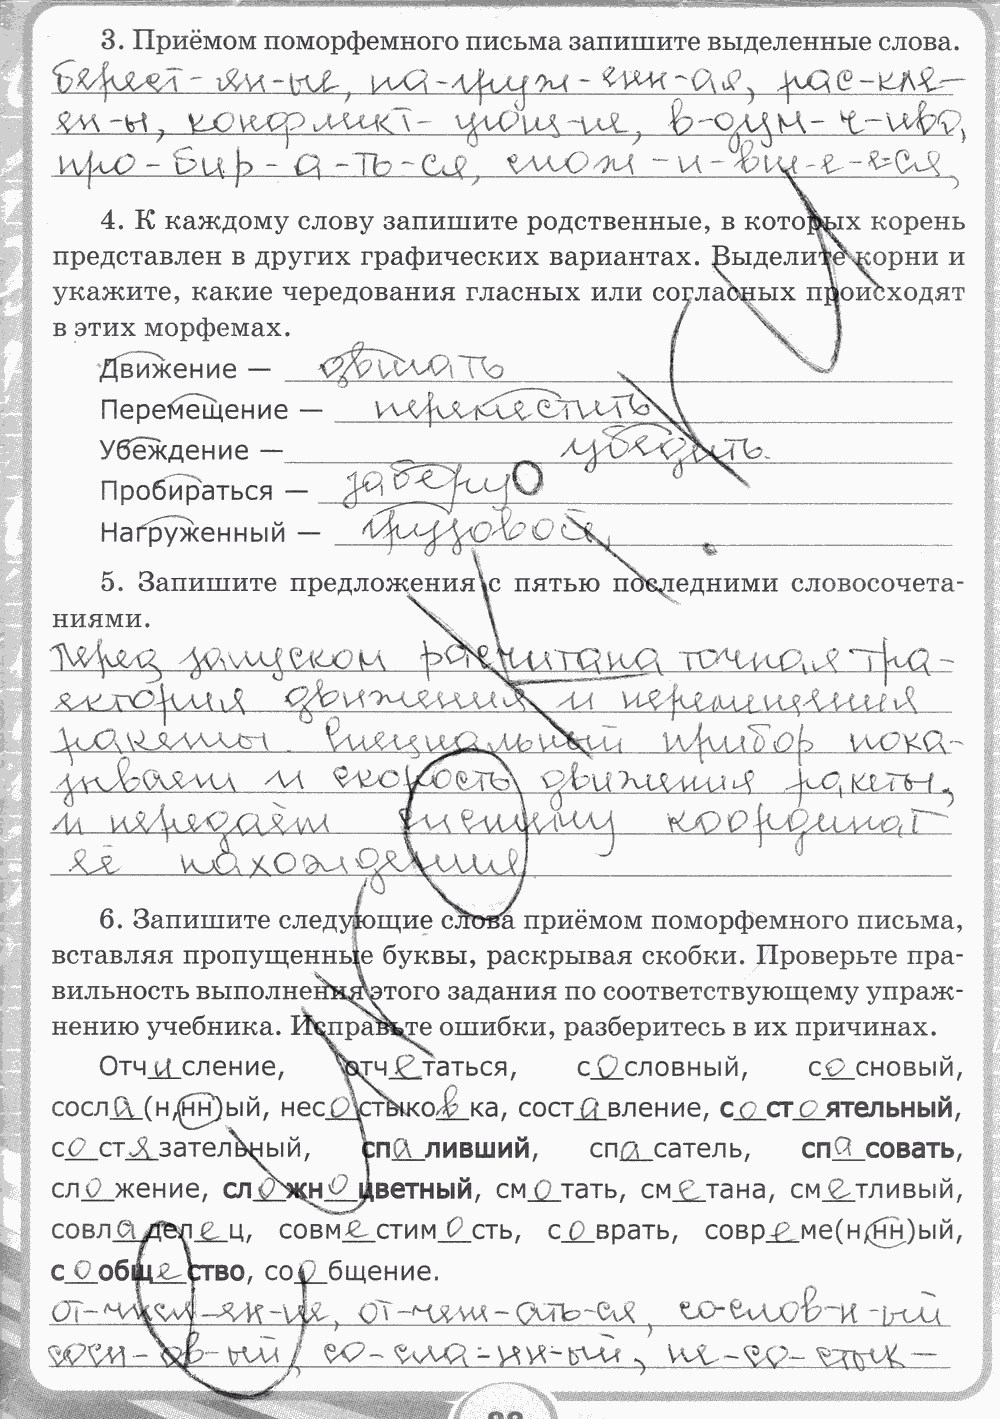 3. Приёмом поморфемного письма запишите выделенные слова.
берест-ян-ые, на-груж-енн-ая, рас-кле-
ен-ы, конфликт-ующ-ие, в-дум-ч-иво,
про-бир-а-ть-ся, слож-и-вш-е-еся,
4. К каждому слову запишите родственные, в которых корень
представлен в других графических вариантах. Выделите корни и
укажите, какие чередования гласных или согласных происходят
в этих морфемах.
Движение — двигать
Перемещение — переместить
Убеждение — убедить.
Пробираться — заберу
Нагруженный — грузовой,
5. Запишите предложения с пятью последними словосочета-
ниями.
Перед запуском расчитана точная тра-
ектория движения и перемещения
ракеты. Специальный прибор пока-
зывает и скорость движения ракеты,
и передаёт систему координат
её нахождения
6. Запишите следующие слова приёмом поморфемного письма,
вставляя пропущенные буквы, раскрывая скобки. Проверьте пра-
вильность выполнения этого задания по соответствующему упраж-
нению учебника. Исправьте ошибки, разберитесь в их причинах.
Отчисление, отчетаться, сословный, сосновый,
сосла(н,нн)ый, несостыковка, составление, состоятельный,
состязательный, спаливший, спасатель, спасовать,
сложение, сложноцветный, смотать, сметана, сметливый,
совладелец, совместимость, соврать, совреме(н,нн)ый,
сообщество, сообщение.
от-числ-ен-ие, от-чет-ать-ся, со-слов-н-ый
сосн-ов-ый, со-сла-нн-ый, не-со-стык-